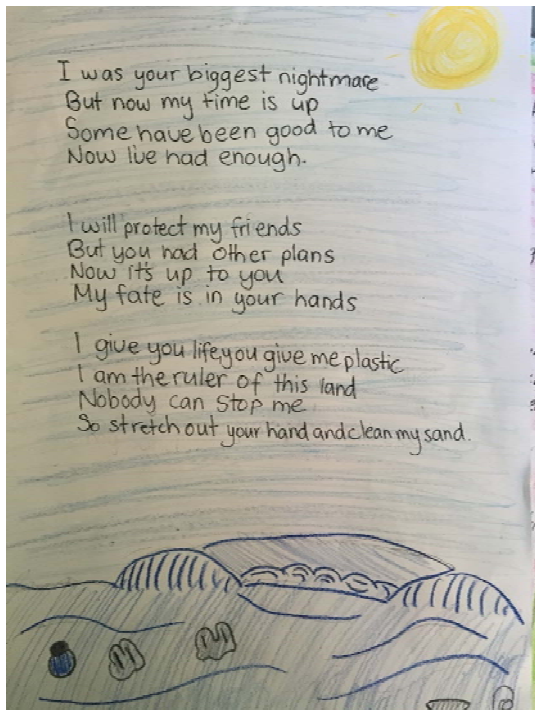 I was your biggest nightmare
But now my time is up
Some have been good to me
Now Iive had enough.
I will protect my friends
But you had other plans
Now it's up to you
My fate is in your hands
I give you life,you give me plastic
I am the ruler of this land
Nobody can stop me
So stretch out your hand and clean my sand.